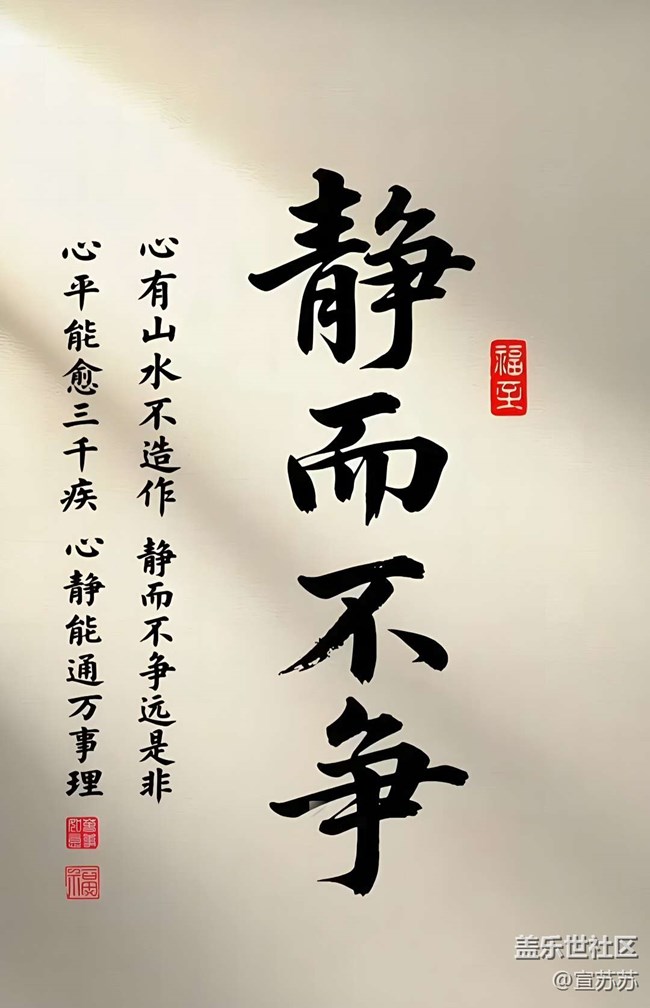 静而不争
福至
心有山水不造作 静而不争远是非
心平能愈三千疾 心静能通万事理
万事如意
福
盖乐世社区
@宣苏苏